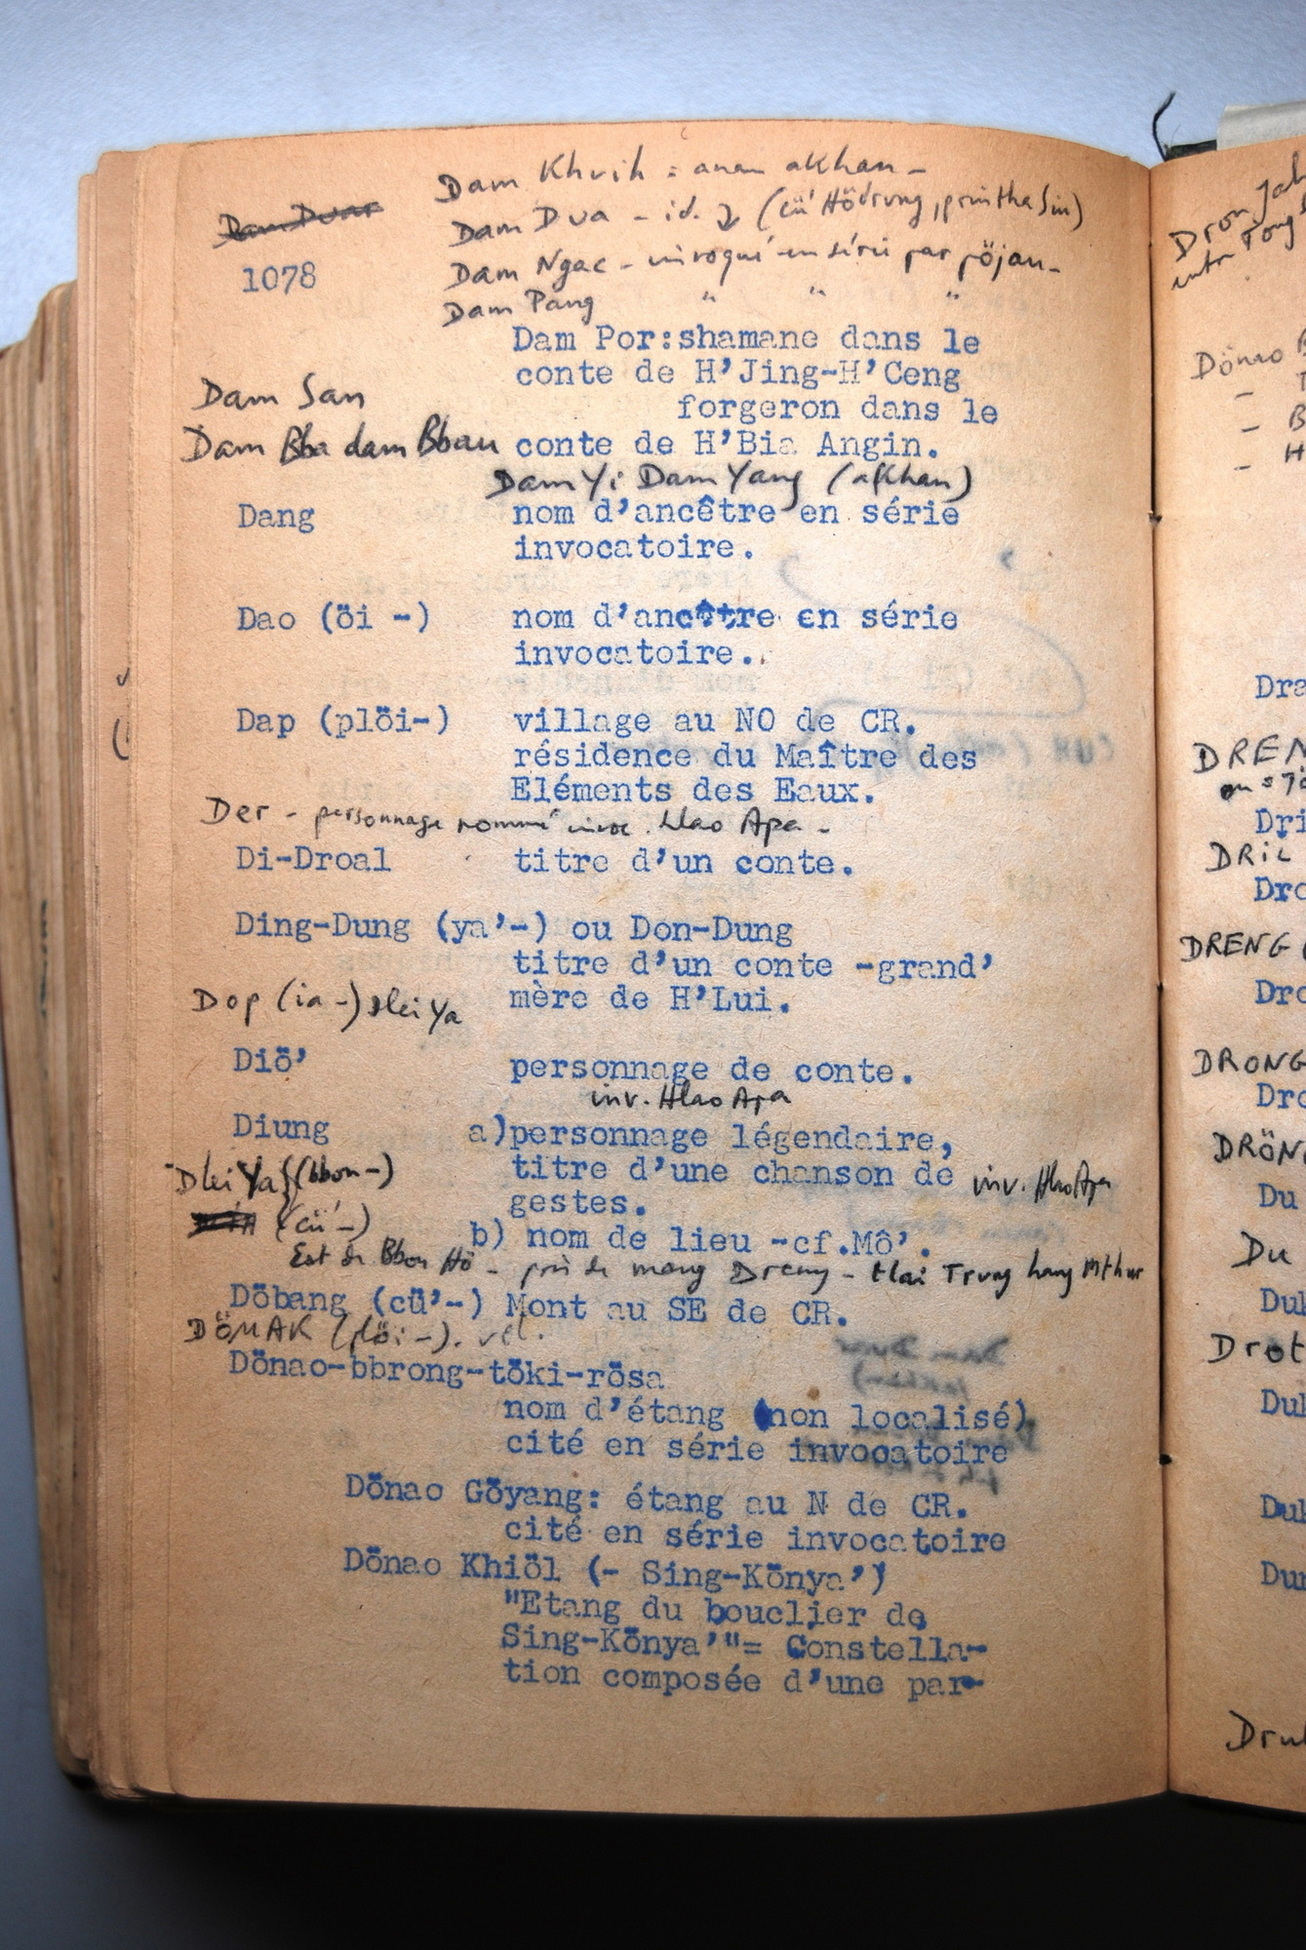 Dam Khvih = anan akhan -
Dam Duar
Dam Dua - id. (cü' Hödrung, printhaSin)
1078
Dam Ngac - invoqué en série par pöjau -
Dam Pang " " "
Dam Por:shamane dans le
conte de H'Jing-H'Ceng
Dam San
forgeron dans le
Dam Bba dam Bbau
conte de H'Bia Angin.
Dam Yi Dam Yang (akhan)
Dang nom d'ancêtre en série
invocatoire.
Dao (öi -) nom d'ancêtre en série
invocatoire.
Dap (plöi-) village au NO de CR.
résidence du Maître des
Eléments des Eaux.
Der - personnage nommé invoc. Hlao Apa -
Di-Droal titre d'un conte.
Ding-Dung (ya'-) ou Don-Dung
titre d'un conte -grand'
mère de H'Lui.
Dop (ia -) dlei Ya
Diö' personnage de conte.
inv. Hlao Apa
Diung a)personnage légendaire,
titre d'une chanson de
inv. Hlao Apa
gestes.
Dlei Ya (bbon -)
(cü' -)
b) nom de lieu -cf.Mô'.
Est de Bbon Hö - près de mang Dreny - Hlai Trung hang Mthur
Döbang (cü'-) Mont au SE de CR.
DÖMAK (plöi -).
Dönao-bbrong-töki-rösa
nom d'étang (non localisé)
cité en série invocatoire
Dönao Göyang: étang au N de CR.
cité en série invocatoire
Dönao Khiöl (- Sing-Könya')
"Etang du bouclier de
Sing-Könya'"= Constella-
tion composée d'une par-
Dron Jah
Dönao
DREN
Dri
DRIL
Dro
DRENG
Dro
DRONG
Dro
DRÖN
Du
Du
Dul
Drot
Dul
Dul
Dur